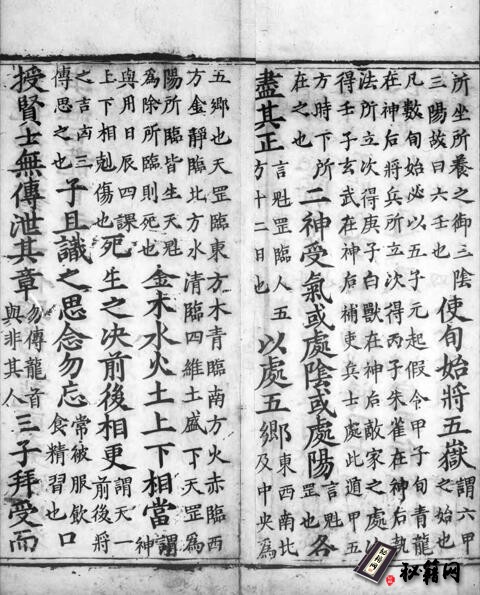 所坐所養之御三陰三陽故曰六壬也使旬始將五嶽謂六甲之始也
凡數旬始必以五子元起假令甲子旬青龍在神后將兵所立次得丙子朱雀在神后執
法所立次得庚子白獸在神后敵家之處以得壬子玄武在神后補吏兵士處此道甲五
方時下所在之也二神受氣或處陰或處陽言魁罡也各
盡其正言魁罡臨人五方十二日也以處五鄉東西南北及中央為
五鄉也天罡臨東方木青臨南方火赤臨西方金靜臨北方水清臨四維土盛下天罡為
陽所臨皆生天魁為除所臨則死也金木水火土上下相當謂神
與用日辰四課上下相剋傷也死生之決前後相更謂天一前後將
之吉凶三傳思之也子且識之思念勿忘常被服飲食精習也口
授賢士無傳泄其章勿傳龍首與非其人三子拜受而
秘籍网